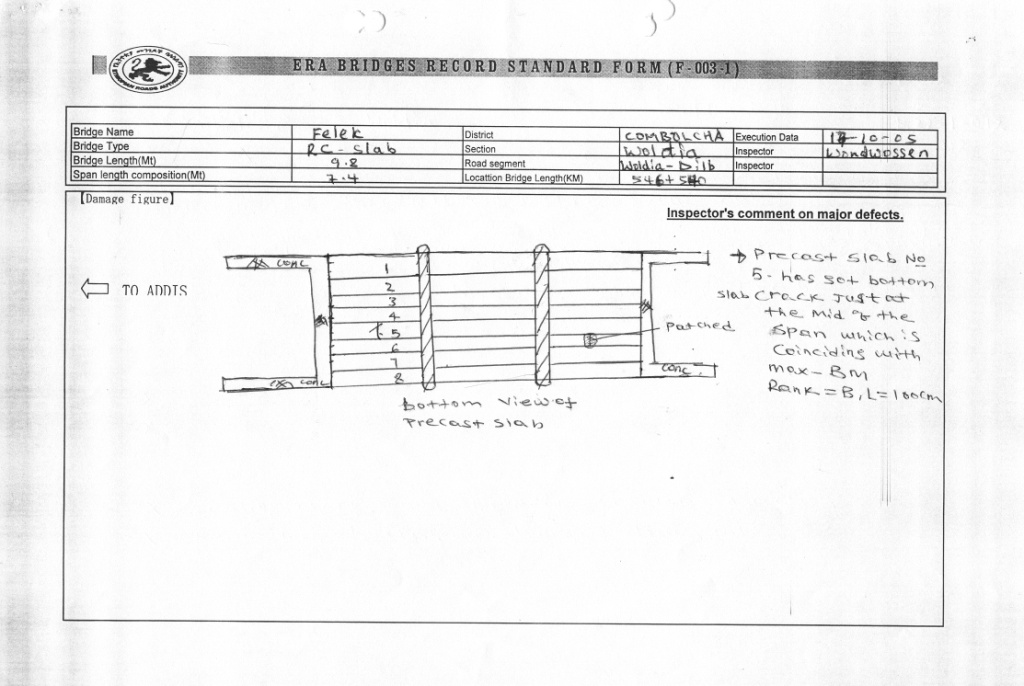 ERA BRIDGES RECORD STANDARD FORM (F-003-1)
Bridge Name Felek District COMBOLCHA Execution Data -10-05
Bridge Type RC-Slab Section Woldia Inspector Wondwossen
Bridge Length(Mt) 9.8 Road segment Woldia-Dilb Inspector
Span length composition(Mt) 7.4 Locattion Bridge Length(KM) 546+540
[Damage figure]
Inspector's comment on major defects.
TO ADDIS
conc
1
2
3
4
5
6
7
8
conc
conc
patched
bottom view of
Precast slab
→ Precast slab No
5- has got bottom
slab Crack Just at
the Mid of the
span which is
Coinciding with
max-BM
Rank=B, L=100cm